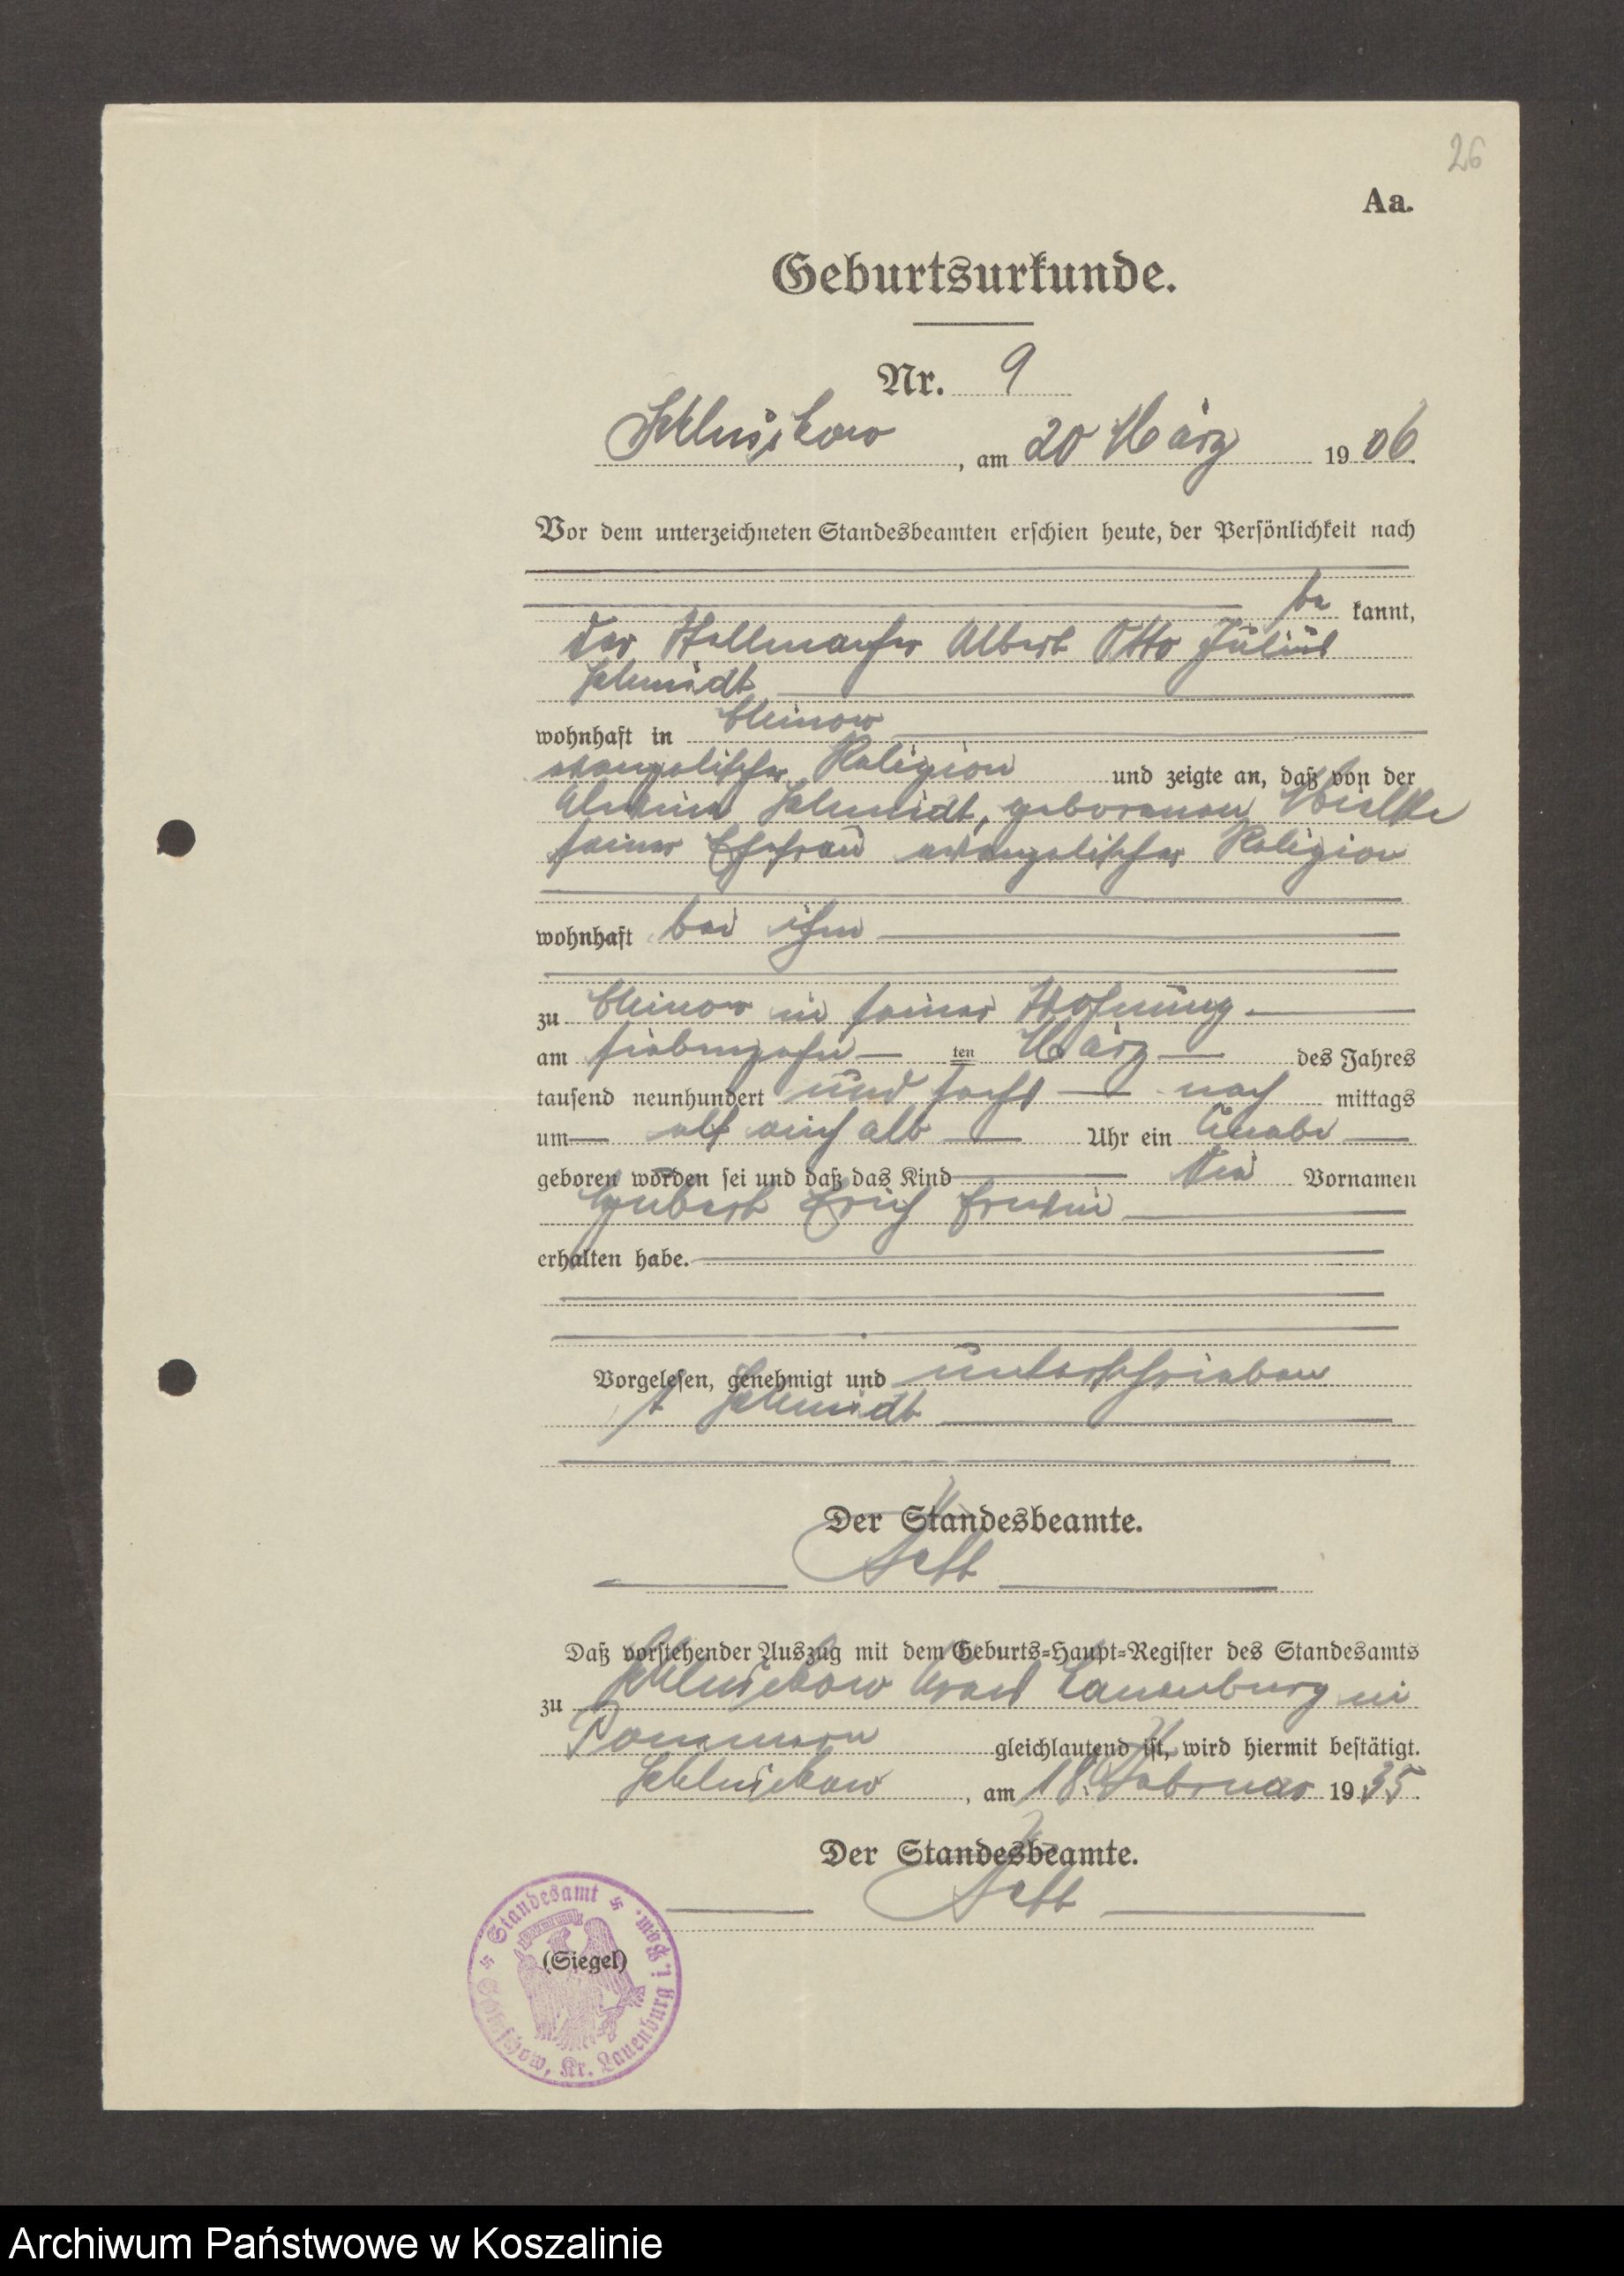 26
Aa.
Geburtsurkunde.
Nr. 9
Schluschow, am 20 März 1906.
Vor dem unterzeichneten Standesbeamten erschien heute, der Persönlichkeit nach
be kannt,
der Stellmacher Albert Otto Julius
Schmidt
wohnhaft in
evangelischer Religion und zeigte an, daß von der
Schmidt, geborenen
seiner Ehefrau evangelischer Religion
wohnhaft bei ihm
zu in seiner Wohnung
am siebenzehn ten März des Jahres
tausend neunhundert und sechs nach mittags
um elf einhalb Uhr ein Knabe
geboren worden sei und daß das Kind die Vornamen
Erich Erwin
erhalten habe.
Vorgelesen, genehmigt und unterschrieben
Schmidt
Der Standesbeamte.
Daß vorstehender Auszug mit dem Geburts-Haupt-Register des Standesamts
zu Schluschow Kreis Lauenburg in
Pommern gleichlautend ist, wird hiermit bestätigt.
Schluschow, am 18. Februar 1935.
Der Standesbeamte.
(Siegel)
Standesamt Schluschow, Kr. Lauenburg i. Pom.
Archiwum Państwowe w Koszalinie